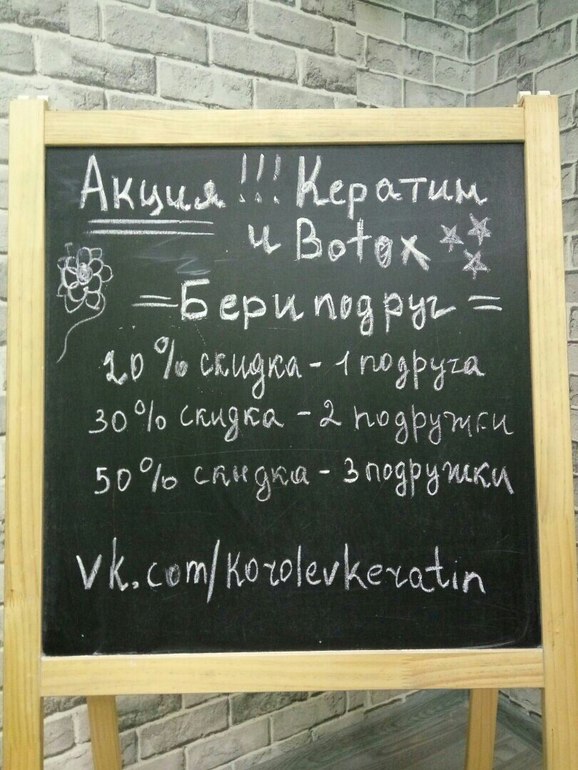 Акция!!! Кератин
и Botox
= Бери подруг =
20% скидка - 1 подруга
30% скидка - 2 подружки
50% скидка - 3 подружки
vk.com/korolevkeratin